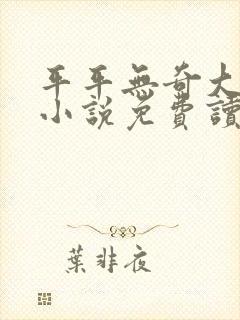 平平無奇大
小說免費讀
葉非夜